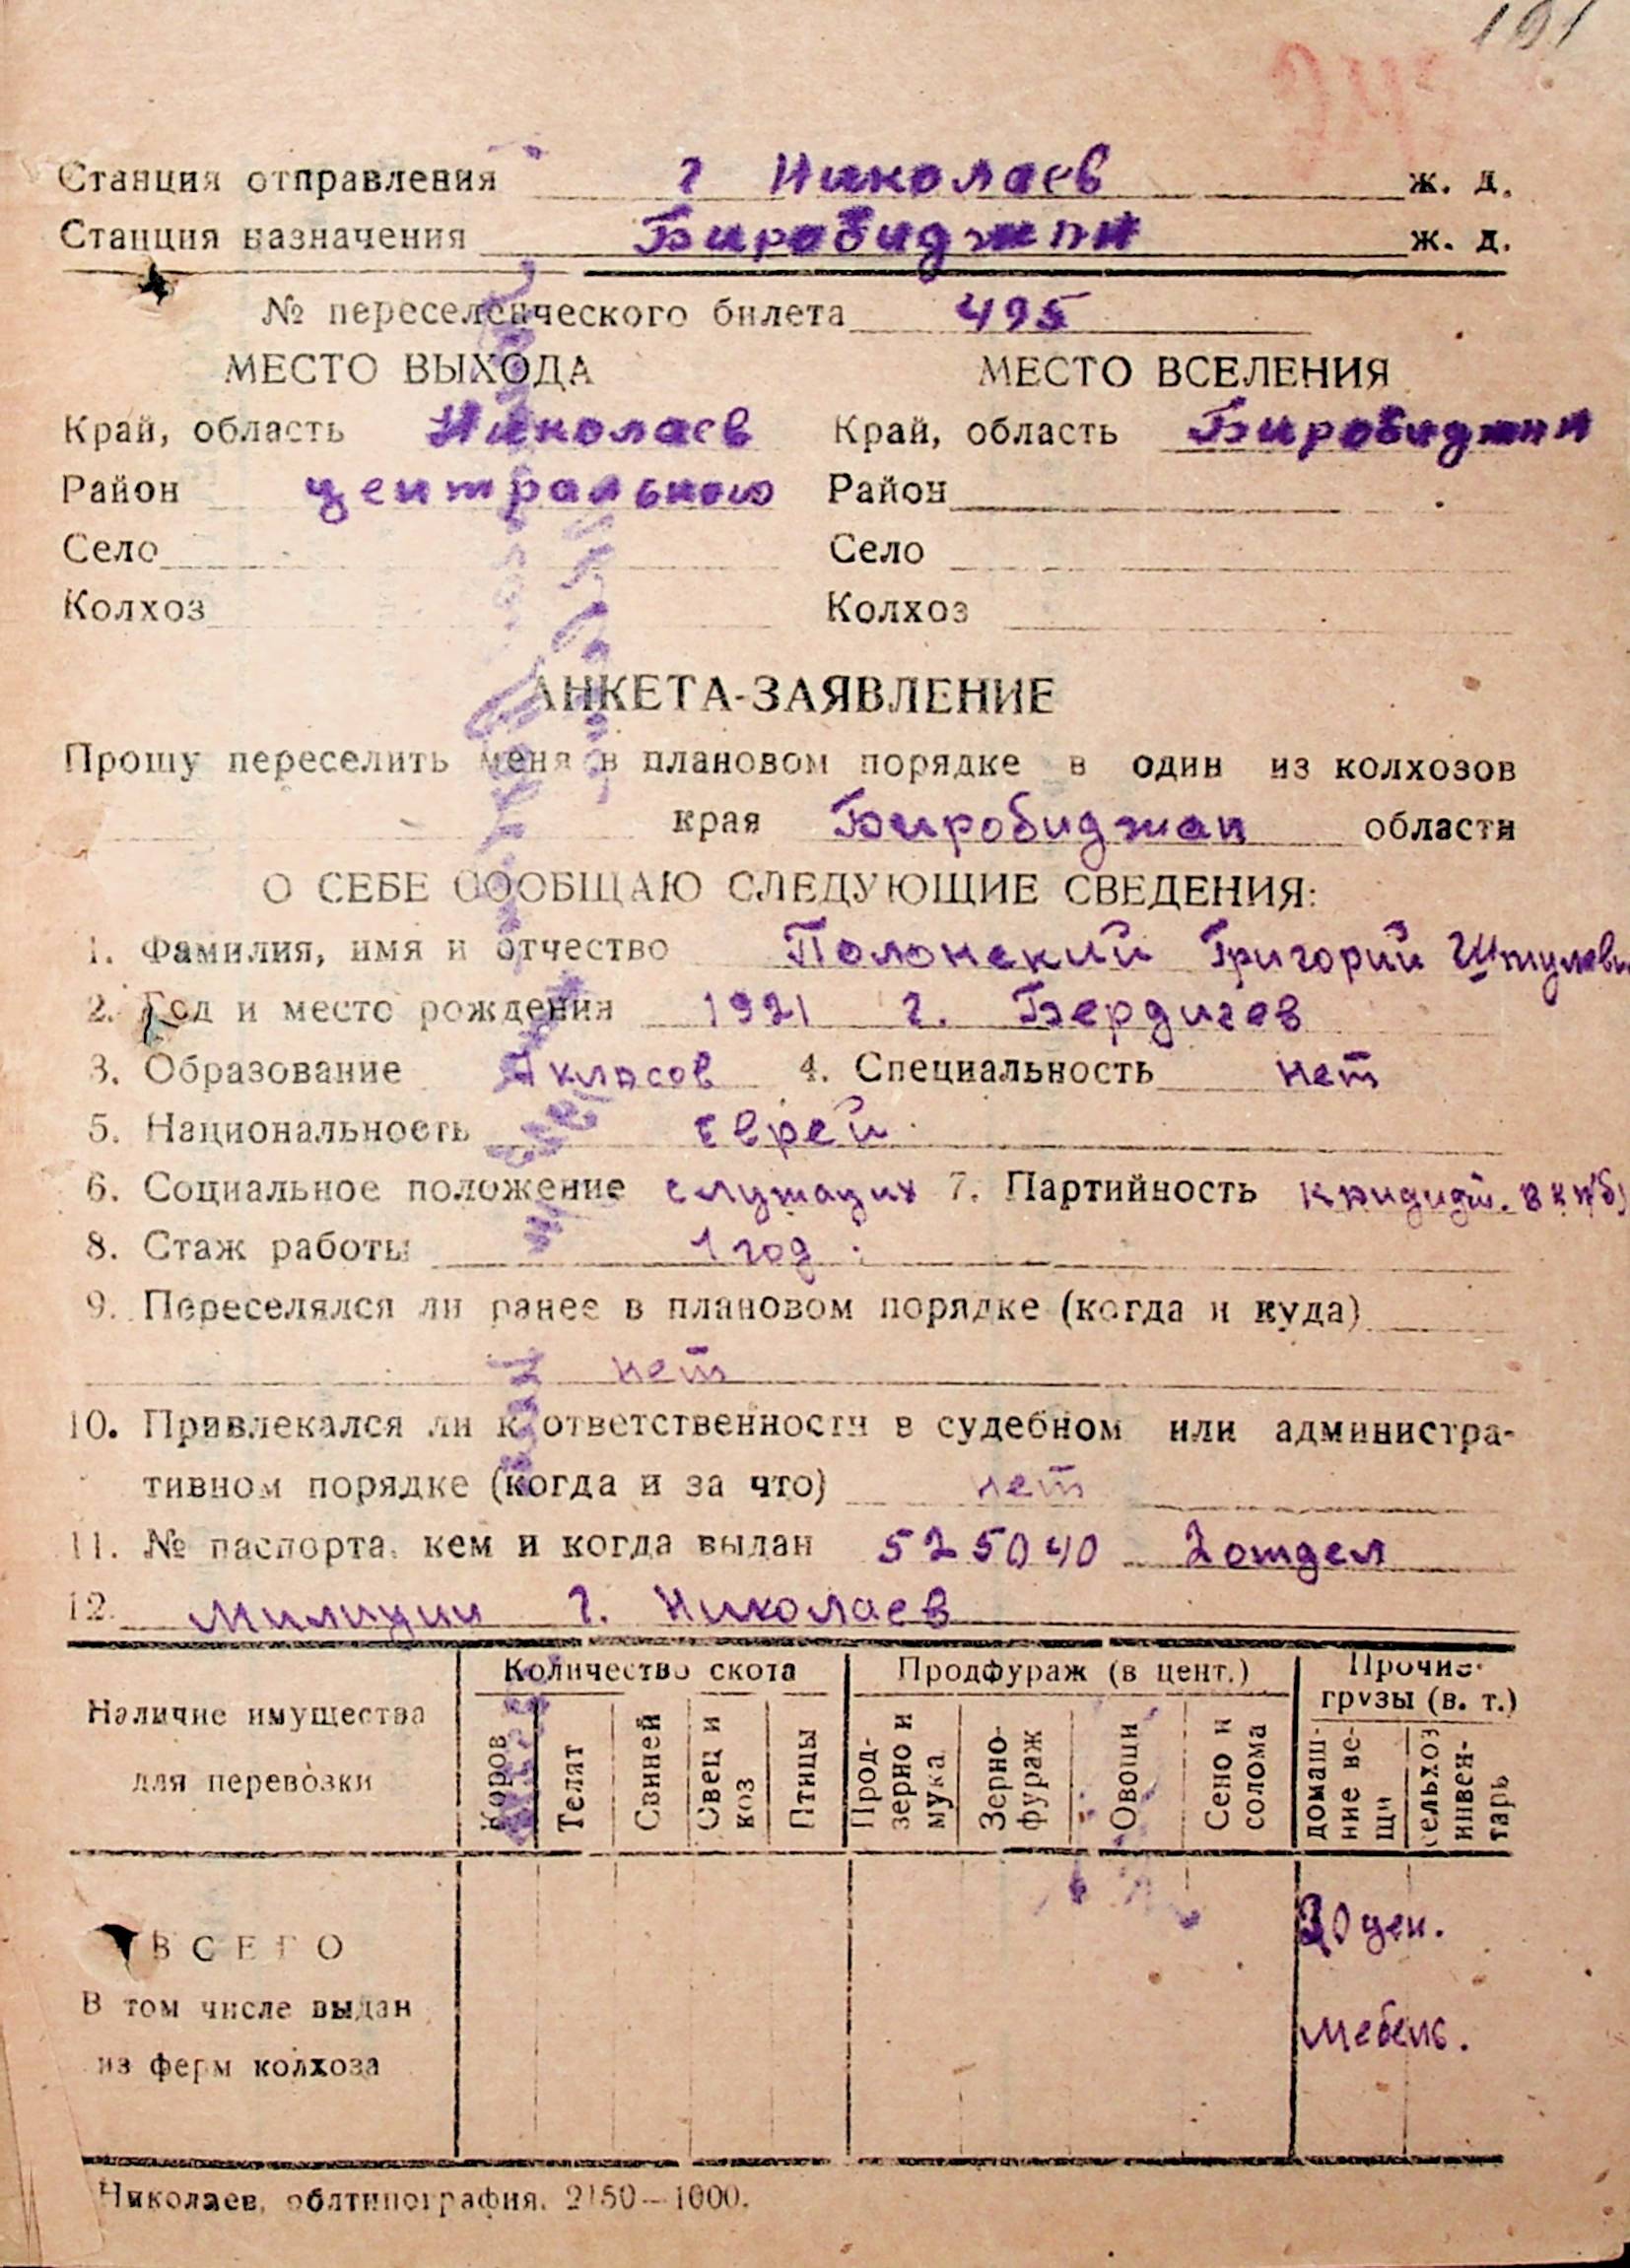 191
Станция отправления г Николаев ж. д.
Станция назначения Биробиджан ж. д.
№ переселенческого билета 495
МЕСТО ВЫХОДА МЕСТО ВСЕЛЕНИЯ
Край, область Николаев Край, область Биробиджан
Район центрального Район
Село Село
Колхоз Колхоз
АНКЕТА-ЗАЯВЛЕНИЕ
Прошу переселить меня в плановом порядке в один из колхозов
края Биробиджан области
О СЕБЕ СООБЩАЮ СЛЕДУЮЩИЕ СВЕДЕНИЯ:
1. Фамилия, имя и отчество Полонский Григорий
2. Год и место рождения 1921 г. Бердичев
3. Образование класов 4. Специальность нет
5. Национальность еврей
6. Социальное положение служащих 7. Партийность кандидат. ВКП(б)
8. Стаж работы 1 год
9. Переселялся ли ранее в плановом порядке (когда и куда)
нет
10. Привлекался ли к ответственности в судебном или администра-
тивном порядке (когда и за что) нет
11. № паспорта, кем и когда выдан 525040 2 отдел
12. милиции г. Николаев
Количество скота Продфураж (в цент.) Прочие
грузы (в. т.)
Наличие имущества
для перевозки
Коров Телят Свинней Овец и коз Птицы Прод-зерно и мука Зерно-фураж Овощи Сено и солома домаш-ние ве-щи сельхоз инвен-тарь
ВСЕГО 20 цен.
В том числе выдан
из ферм колхоза мебель.
Николаев, облтипография. 2150—1000.